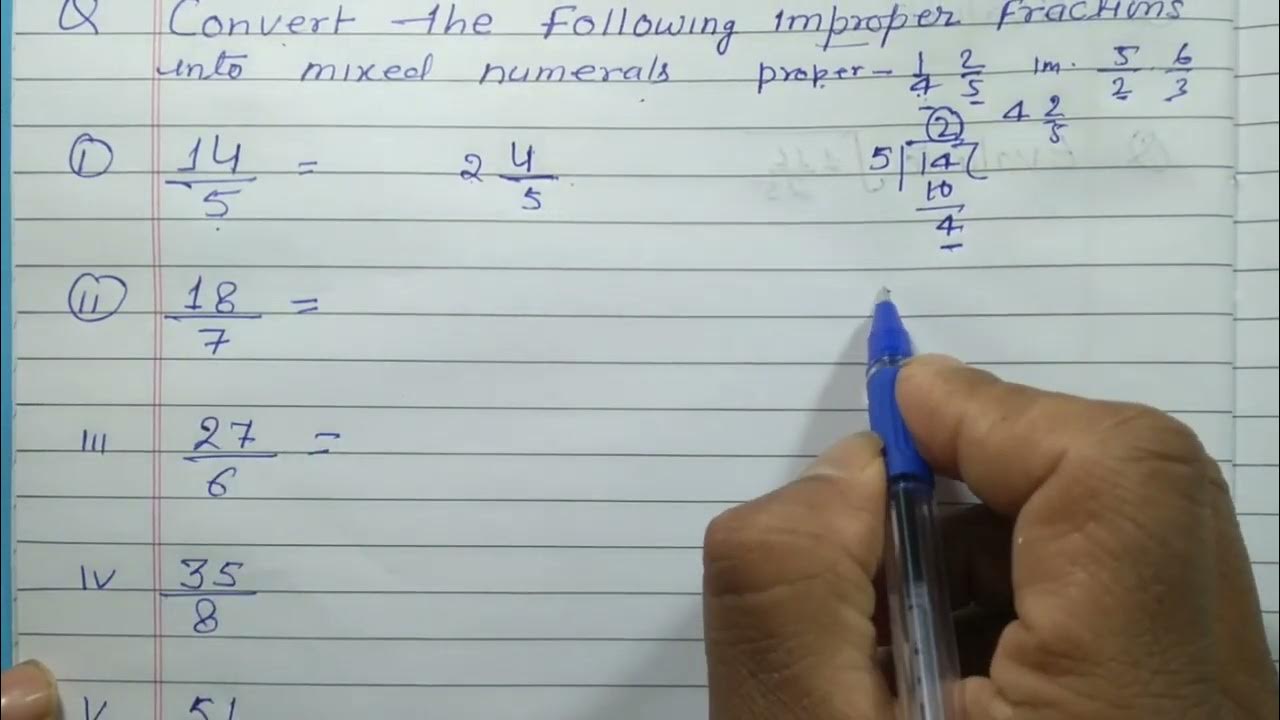 Q Convert the Following improper fractions
into mixed numerals proper - 1/4 2/5 Im. 5/2 6/3
4 2/5
i 14/5 = 2 4/5
2
5 14
10
4
ii 18/7 =
III 27/6 =
IV 35/8
V 51